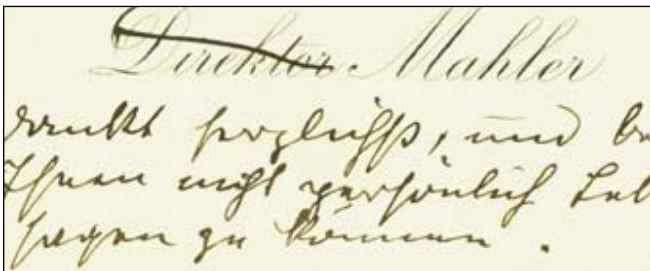 Direktor Mahler
dankt herzlichst, und be
Ihnen nicht persönlich Leb
sagen zu können.